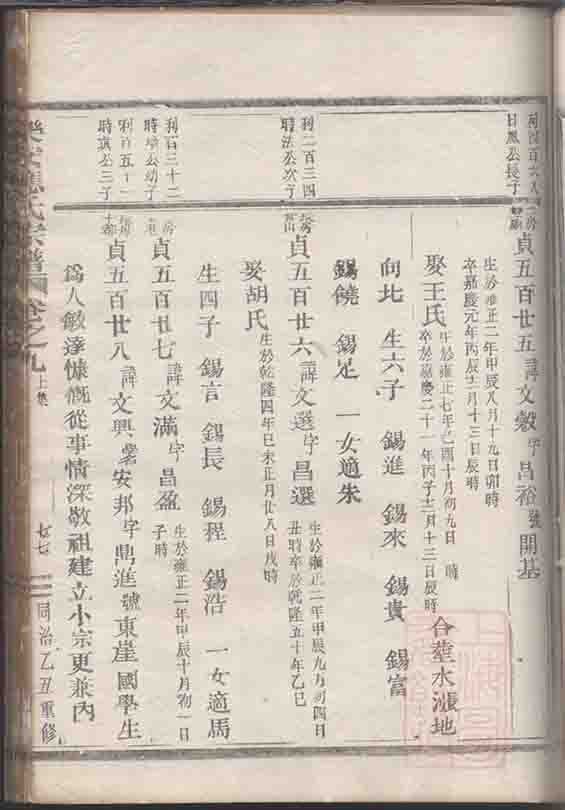 利四百六八
日鳳公長子
貞五百廿五 諱文毅字昌裕號開基
生於雍正二年甲辰八月十九日卯時
卒嘉慶元年丙辰十二月十三日辰時
娶王氏 生於雍正七年己酉十月初九日 時
卒於嘉慶二十一年丙子十二月十三日辰時 合塟水漲地
向北 生六子 錫進 錫來 錫貴 錫富
錫饒 錫足 一女適朱
利二百三四
時法公次子
貞五百廿六 諱文選字昌選 生於雍正二年甲辰九月初四日
丑時卒於乾隆五十年乙巳
娶胡氏 生於乾隆四年己未正月廿八日戌時
生四子 錫言 錫長 錫程 錫浩 一女適馬
利百三十二
時 公幼子
貞五百廿七 諱文滿字昌盈 生於雍正二年甲辰十月初一日
子時
利百五十一
時 公三子
貞五百廿八 諱文興 安邦字鼎進號東崖國學生
為人敏達慷慨從事情深敬祖建立小宗更兼內
氏宗譜 卷之九 上集
同治乙丑重修